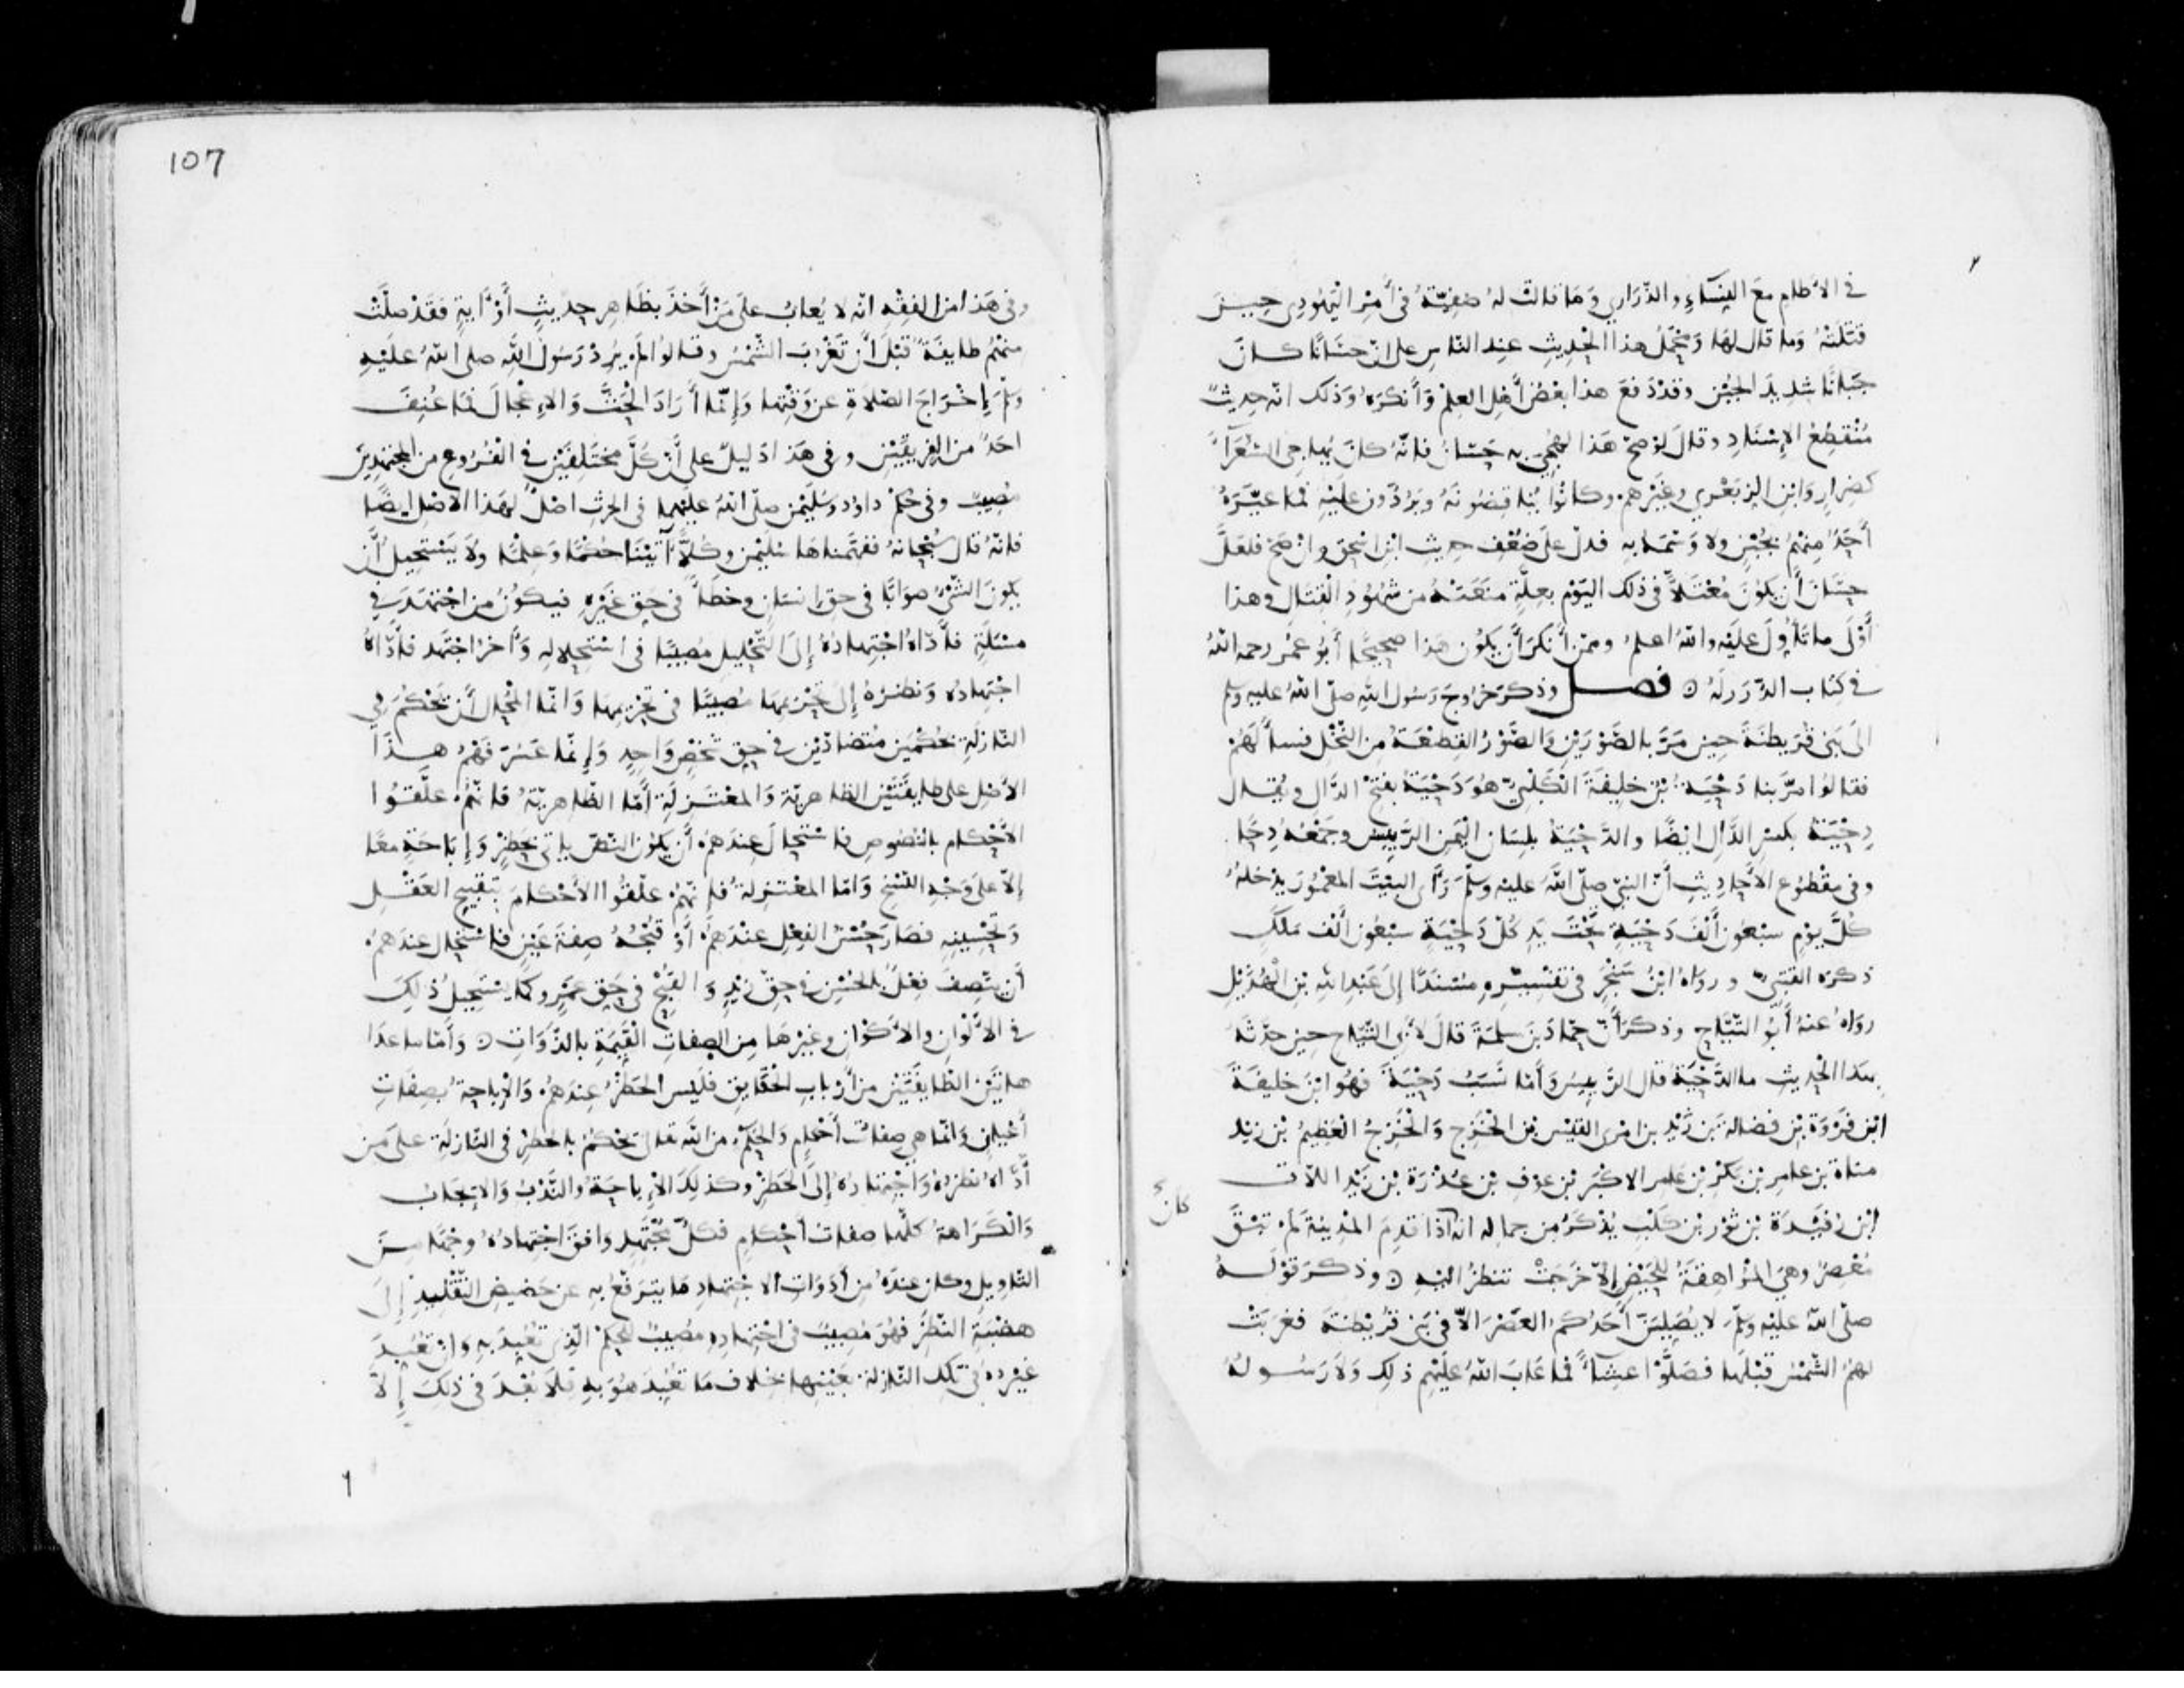 في الآطام مع النساء والذراري وما قالت له صفية في أمر اليهودي حين
قتلته وما قال لها ومحمل هذا الحديث عند الناس على ان حسانا كان
جبانا شديد الجبن وقد دفع هذا بعض أهل العلم وأنكره وذلك انه حديث
منقطع الإسناد وقال لو صح هذا لهجي به حسان فانه كان يهاجي الشعراء
كضرار وابن الزبعري وغيرهم وكانوا يناقضونه ويردون عليه فما عيره
أحد منهم بجبن ولا وسمه به فدل على ضعف حديث ابن اسحق وان صح فلعل
حسان أن يكون معتلا في ذلك اليوم بعلة منعته من شهود القتال وهذا
أولى ما تأول عليه والله اعلم وممن أنكر أن يكون هذا صحيحا أبو عمر رحمه الله
في كتاب الدرر له ۞ فصل وذكر خروج رسول الله صلى الله عليه وسلم
الى بني قريظة حين مر بالصورين والصور القطعة من النخل فسألهم
فقالوا مر بنا دحية بن خليفة الكلبي هو دحية بفتح الدال ويقال
دحية بكسر الدال ايضا والدحية بلسان اليمن الرييس وجمعه دحا
وفي مقطوع الأحاديث أن النبي صلى الله عليه وسلم رأى البيت المعمور يدخله
كل يوم سبعون ألف دحية تحت يد كل دحية سبعون ألف ملك
ذكره القتبي ورواه ابن سنجر في تفسيره مسندا إلى عبد الله بن الهذيل
رواه عنه أبو التياح وذكر أن حماد بن سلمة قال لأبي التياح حين حدثه
بهذا الحديث ما الدحية قال الرييس وأما نسب دحية فهو ابن خليفة
ابن فروة بن فضالة بن زيد بن امرئ القيس بن الخزج والخزج العظيم بن زيد
مناة بن عامر بن بكر بن عامر الاكبر بن عوف بن عذرة بن زيد اللات
ابن رفيدة بن ثور بن كلب يذكر من جماله انه اذا قدم المدينة لم تبق
كان
معصر وهي المراهقة للحيض إلا خرجت تنظر اليه ۞ وذكر قوله
صلى الله عليه وسلم لا يصلين أحدكم العصر الا في بني قريظة فغربت
لهم الشمس قبلها فصلوا عشاء فما عاب الله عليهم ذلك ولا رسوله
107
وفي هذا من الفقه انه لا يعاب على من أخذ بظاهر حديث أو آية فقد صلت
منهم طايفة قبل أن تغرب الشمس وقالوا لم يرد رسول الله صلى الله عليه
وسلم إخراج الصلاة عن وقتها وإنما أراد الحث والاعجال فما عنف
احد من الفريقين وفي هذا دليل على أن كل مختلفين في الفروع من المجتهدين
مصيب وفي حكم داود وسليمن صلى الله عليهما في الحرث اصل لهذا الاصل ايضا
فانه قال سبحانه ففهمناها سليمن وكلا آتينا حكما وعلما ولا يستحيل أن
يكون الشيء صوابا في حق انسان وخطأ في حق غيره فيكون من اجتهد في
مسئلة فأداه اجتهاده إلى التحليل مصيبا في استحلاله وآخر اجتهد فأداه
اجتهاده ونظره إلى تحريمها مصيبا في تحريمها وانما المحال أن تحكم في
النازلة بحكمين متضادين في حق شخص واحد وإنما عسر فهم هذا
الأصل على طايفتين الظاهرية والمعتزلة أما الظاهرية فانهم علقوا
الأحكام بالنصوص فاستحال عندهم أن يكون النص ياتي بحظر وإباحة معا
إلا على وجه النسخ واما المعتزلة فانهم علقوا الأحكام بتقبيح العقل
وتحسينه فصار حسن الفعل عندهم أو قبحه صفة عين فاستحال عندهم
أن يتصف فعل بالحسن في حق زيد والقبح في حق عمرو كما يستحيل ذلك
في الالوان والاكوان وغيرها من الصفات القيمة بالذوات ۞ وأما ما عدا
هاتين الطايفتين من أرباب الحقايق فليس الحظر عندهم والإباحة بصفات
أعيان وانما هي صفات أحكام والحكم من الله تعالى بحكم بالحظر في النازلة على من
أداه نظره واجتهاده إلى الحظر وكذلك الاباحة والندب والايجاب
والكراهة كلها صفات أحكام فكل مجتهد وافق اجتهاده وجها من
التاويل وكان عنده من أدوات الاجتهاد ما يترفع به عن حضيض التقليد إلى
هضبة النظر فهو مصيب في اجتهاده مصيب للحكم الذي تعبد به وان تعبد
غيره في تلك النازلة بعينها بخلاف ما تعبد هو به فلا بعد في ذلك إلا